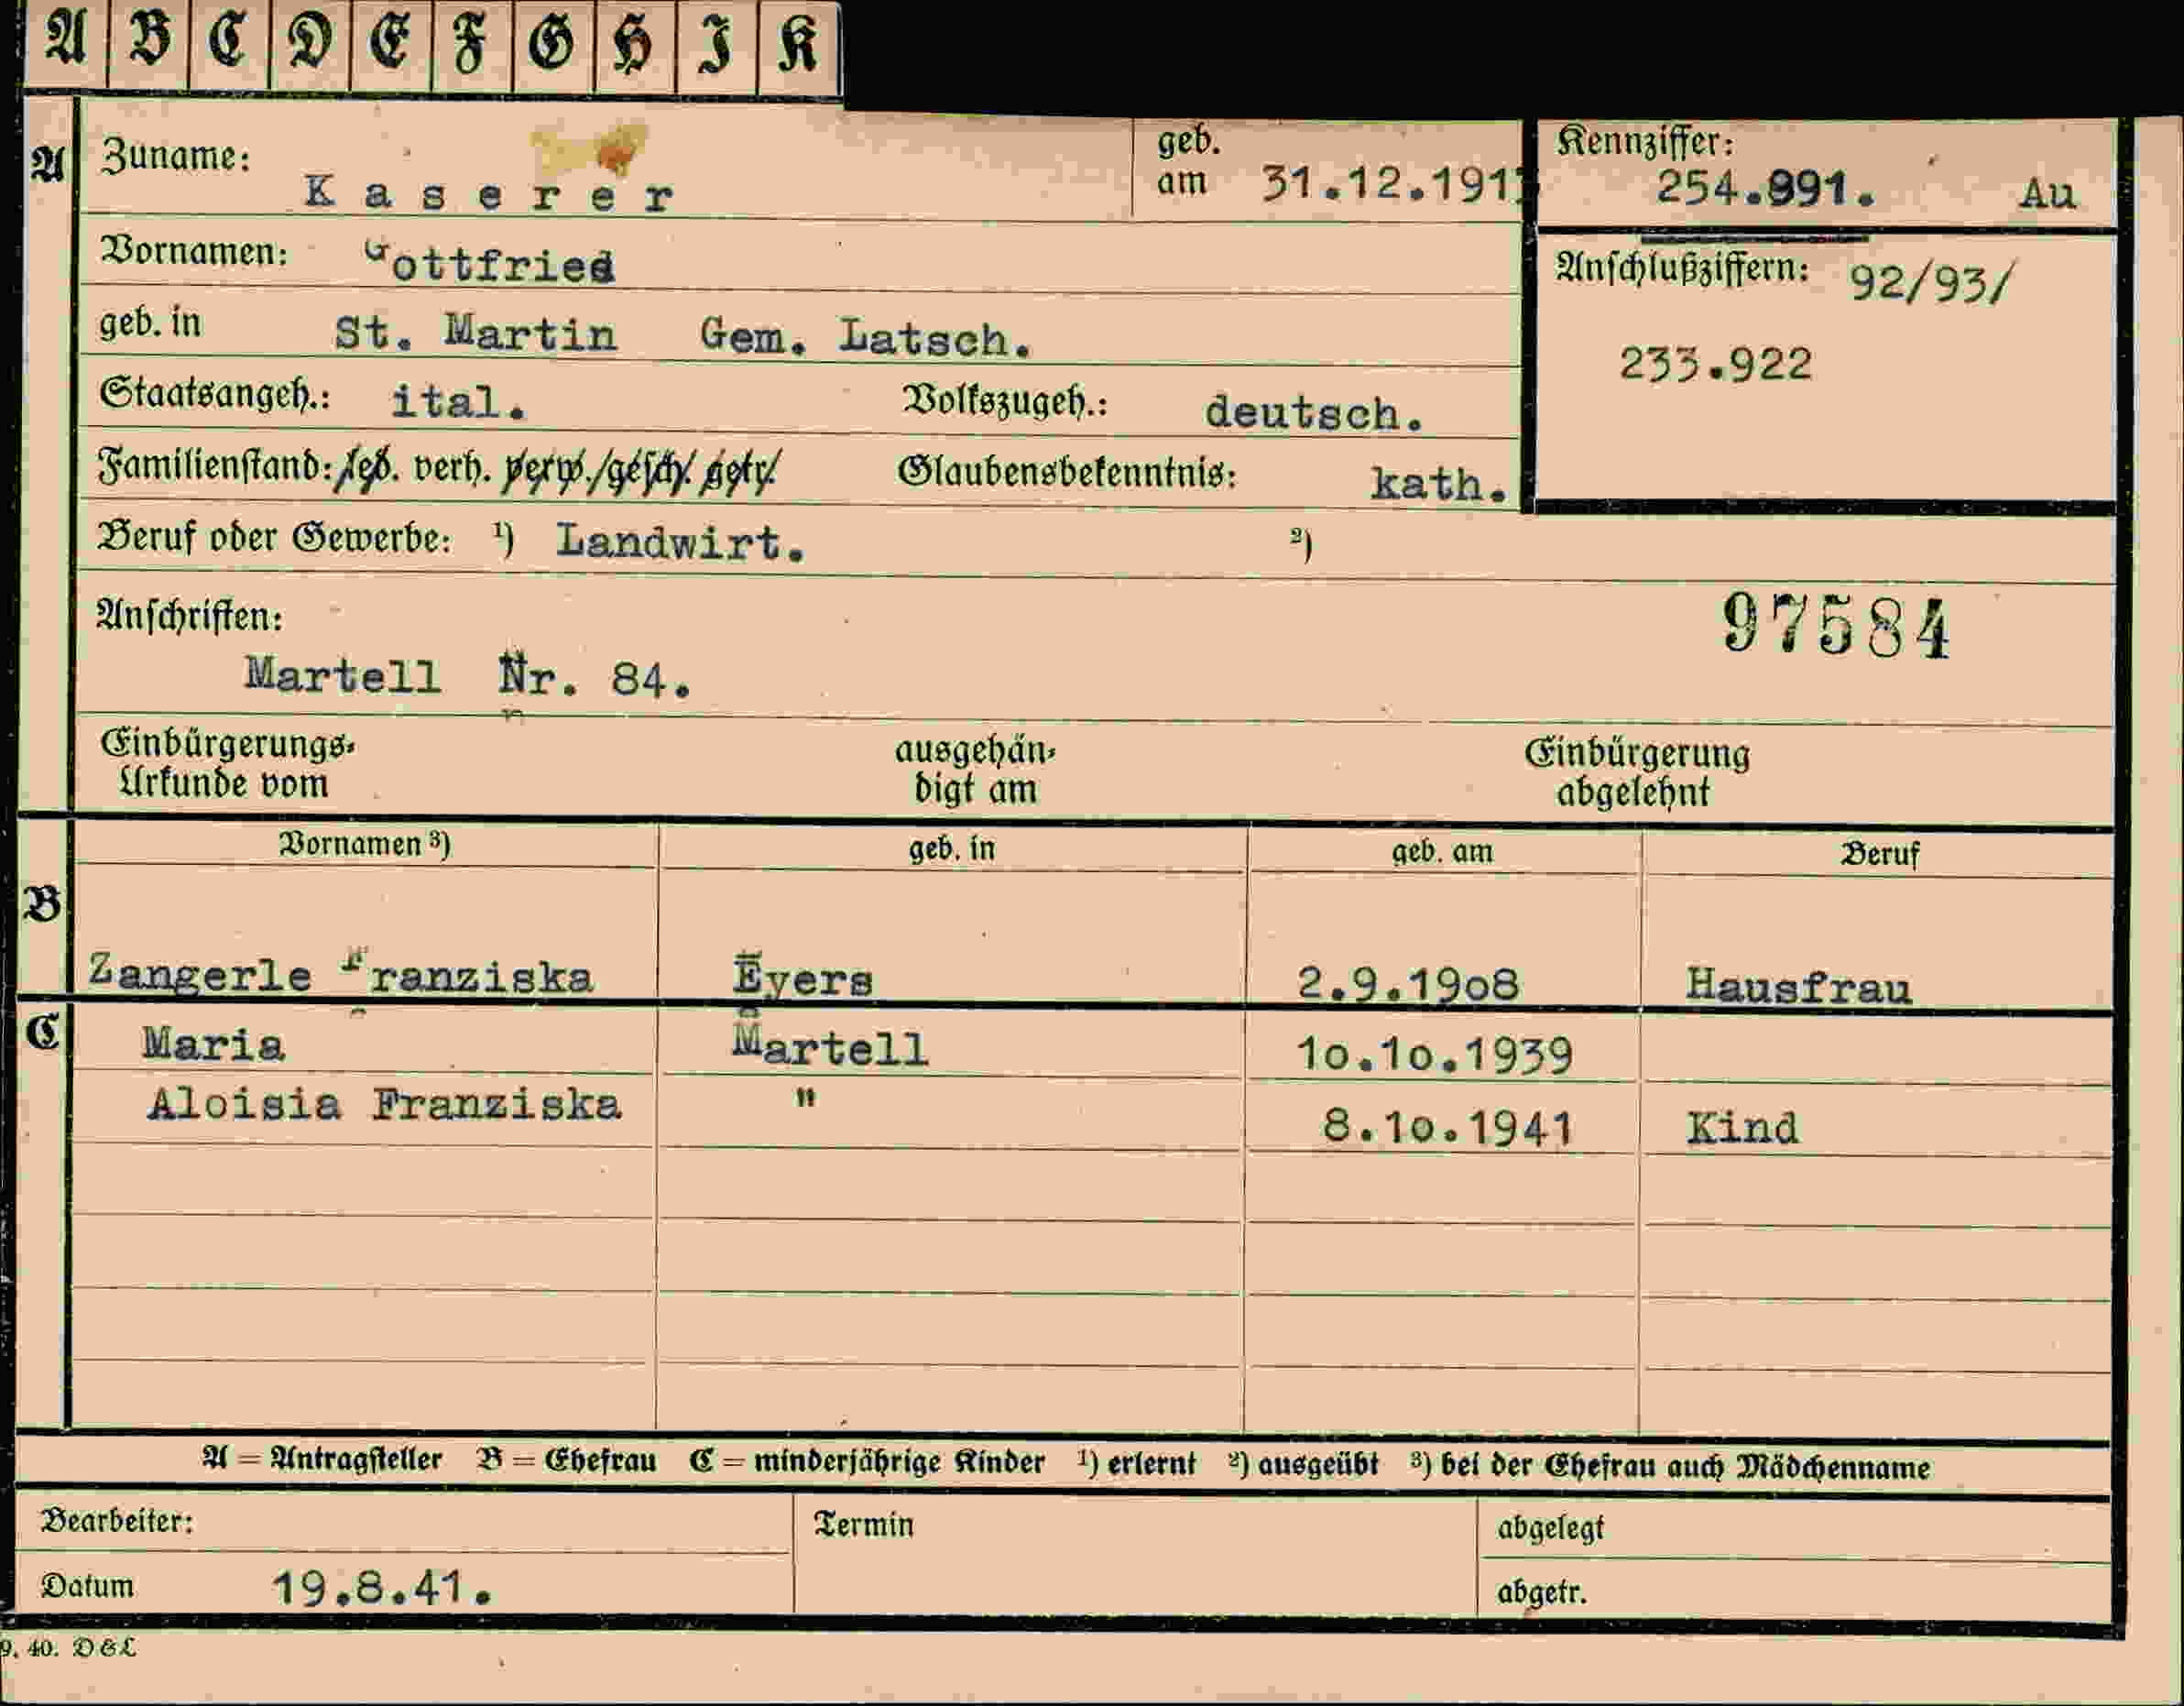 A B C D E F G H I K
A
Zuname: Kaserer
geb. am 31.12.191
Kennziffer: 254.891. Au
Vornamen: Gottfried
Anschlußziffern: 92/93/
233.922
geb. in St. Martin Gem. Latsch.
Staatsangeh.: ital. Volkszugeh.: deutsch.
Familienstand: led. verh. verw. gesch. getr. Glaubensbekenntnis: kath.
Beruf oder Gewerbe: ¹) Landwirt. ²)
Anschriften:
97584
Martell Nr. 84.
Einbürgerungs-
Urkunde vom
ausgehän-
digt am
Einbürgerung
abgelehnt
Vornamen ³) geb. in geb. am Beruf
B
Zangerle Franziska Eyers 2.9.19o8 Hausfrau
C
Maria Martell 1o.1o.1939
Aloisia Franziska " 8.1o.1941 Kind
A = Antragsteller B = Ehefrau C = minderjährige Kinder ¹) erlernt ²) ausgeübt ³) bei der Ehefrau auch Mädchenname
Bearbeiter:
Termin
abgelegt
Datum 19.8.41.
abgetr.
9. 40. D & L